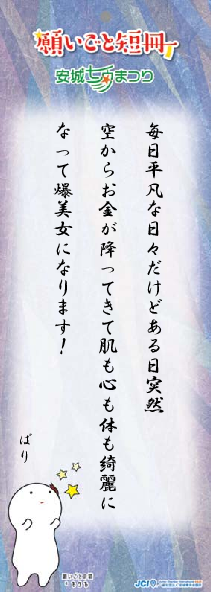 願いごと短冊
安城七夕まつり
毎日平凡な日々だけどある日突然
空からお金が降ってきて肌も心も体も綺麗に
なって爆美女になります！
ばり
JCI